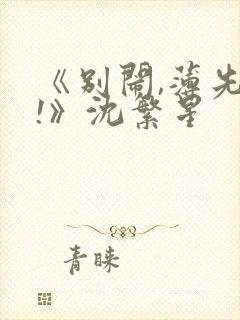 《别闹,薄先
!》沈繁星
青睐